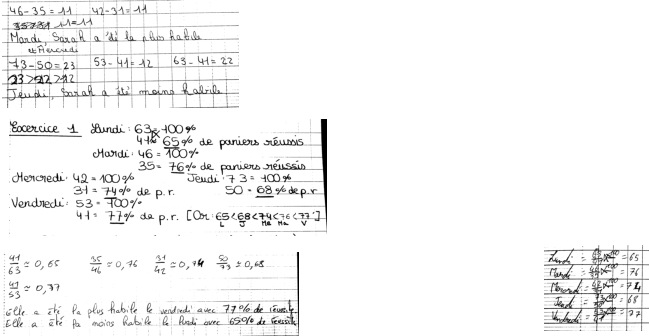 46-35 = 11 42-31 = 11
11 = 11
Mardi, Sarah a été la plus habile
et Mercredi
73-50 = 23 53-41 = 12 63-41 = 22
23 > 22 > 12
Jeudi, Sarah a été moins habile
Exercice 1 Lundi : 63 = 100%
41 = 65% de paniers réussis
Mardi : 46 = 100%
35 = 76% de paniers réussis
Mercredi : 42 = 100% Jeudi : 73 = 100%
31 = 74% de p.r. 50 = 68% de p.r
Vendredi : 53 = 100%
41 = 77% de p.r. [Or : 65<68<74<76<77]
L J Me Ma V
41/63 ≈ 0,65 35/46 ≈ 0,76 31/42 ≈ 0,74 50/73 ≈ 0,68
41/53 ≈ 0,77
Elle a été la plus habile le vendredi avec 77% de réussite
Elle a été la moins habile le lundi avec 65% de réussite
Lundi = = 65
Mardi = = 76
Mercredi = = 74
Jeudi = = 68
Vendredi = = 77